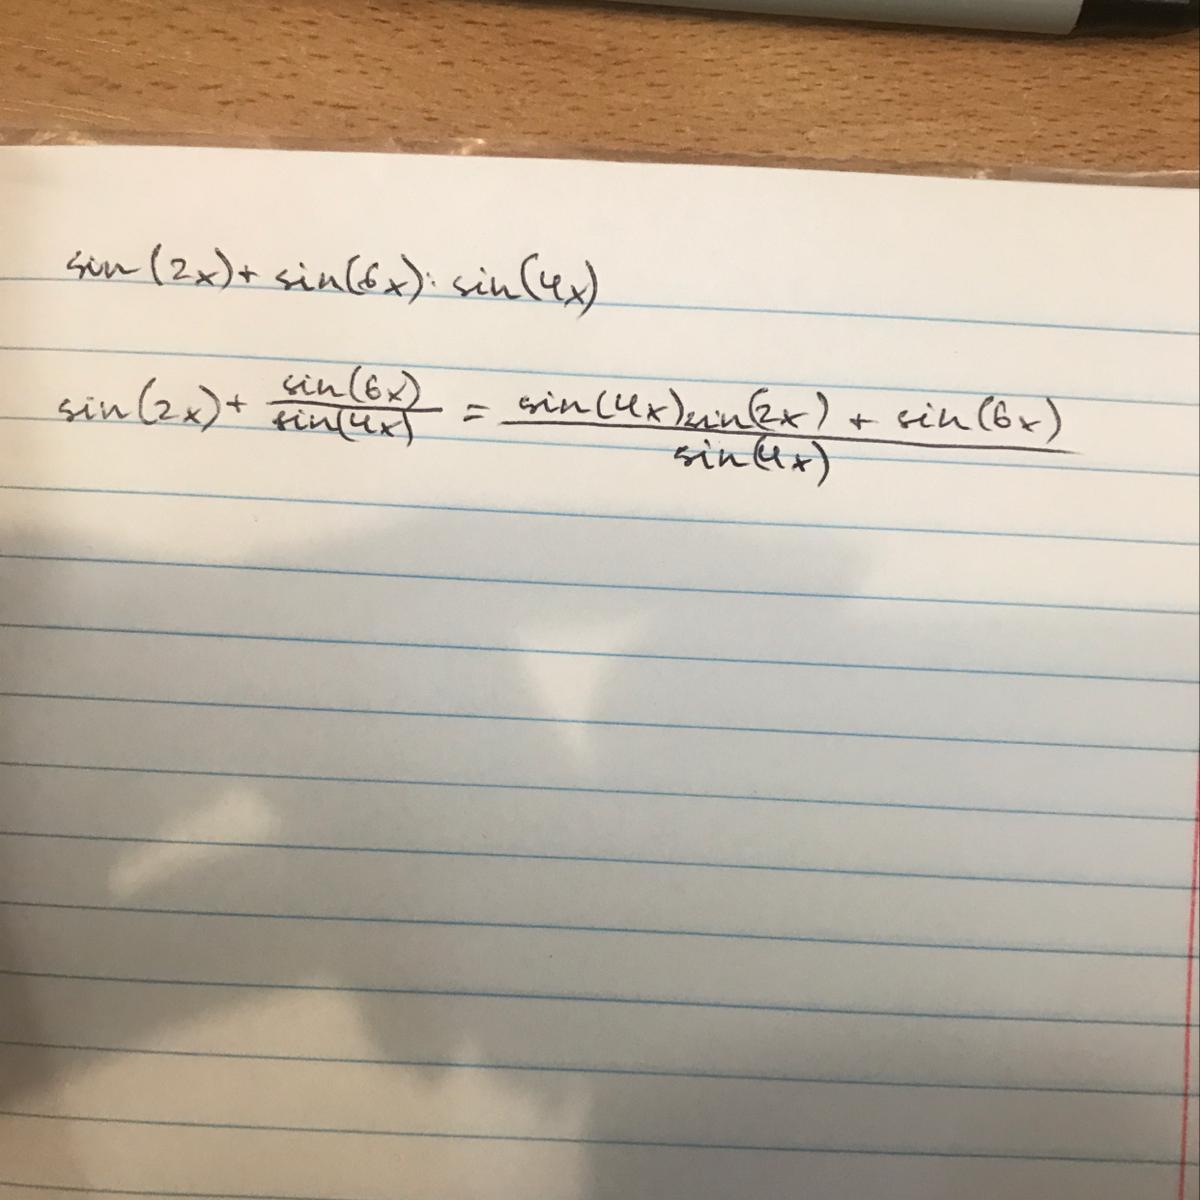 sin(2x)+ sin(6x): sin(4x)
sin(2x)+ \frac{sin(6x)}{sin(4x)} = \frac{sin(4x)sin(2x) + sin(6x)}{sin(4x)}